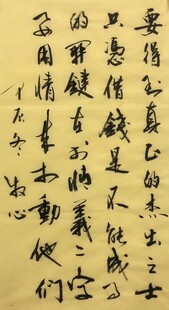 要得到真正的杰出之士
只憑借錢是不能成事
的關鍵在于情義二字
要用情來打動他們
甲辰冬 牧心